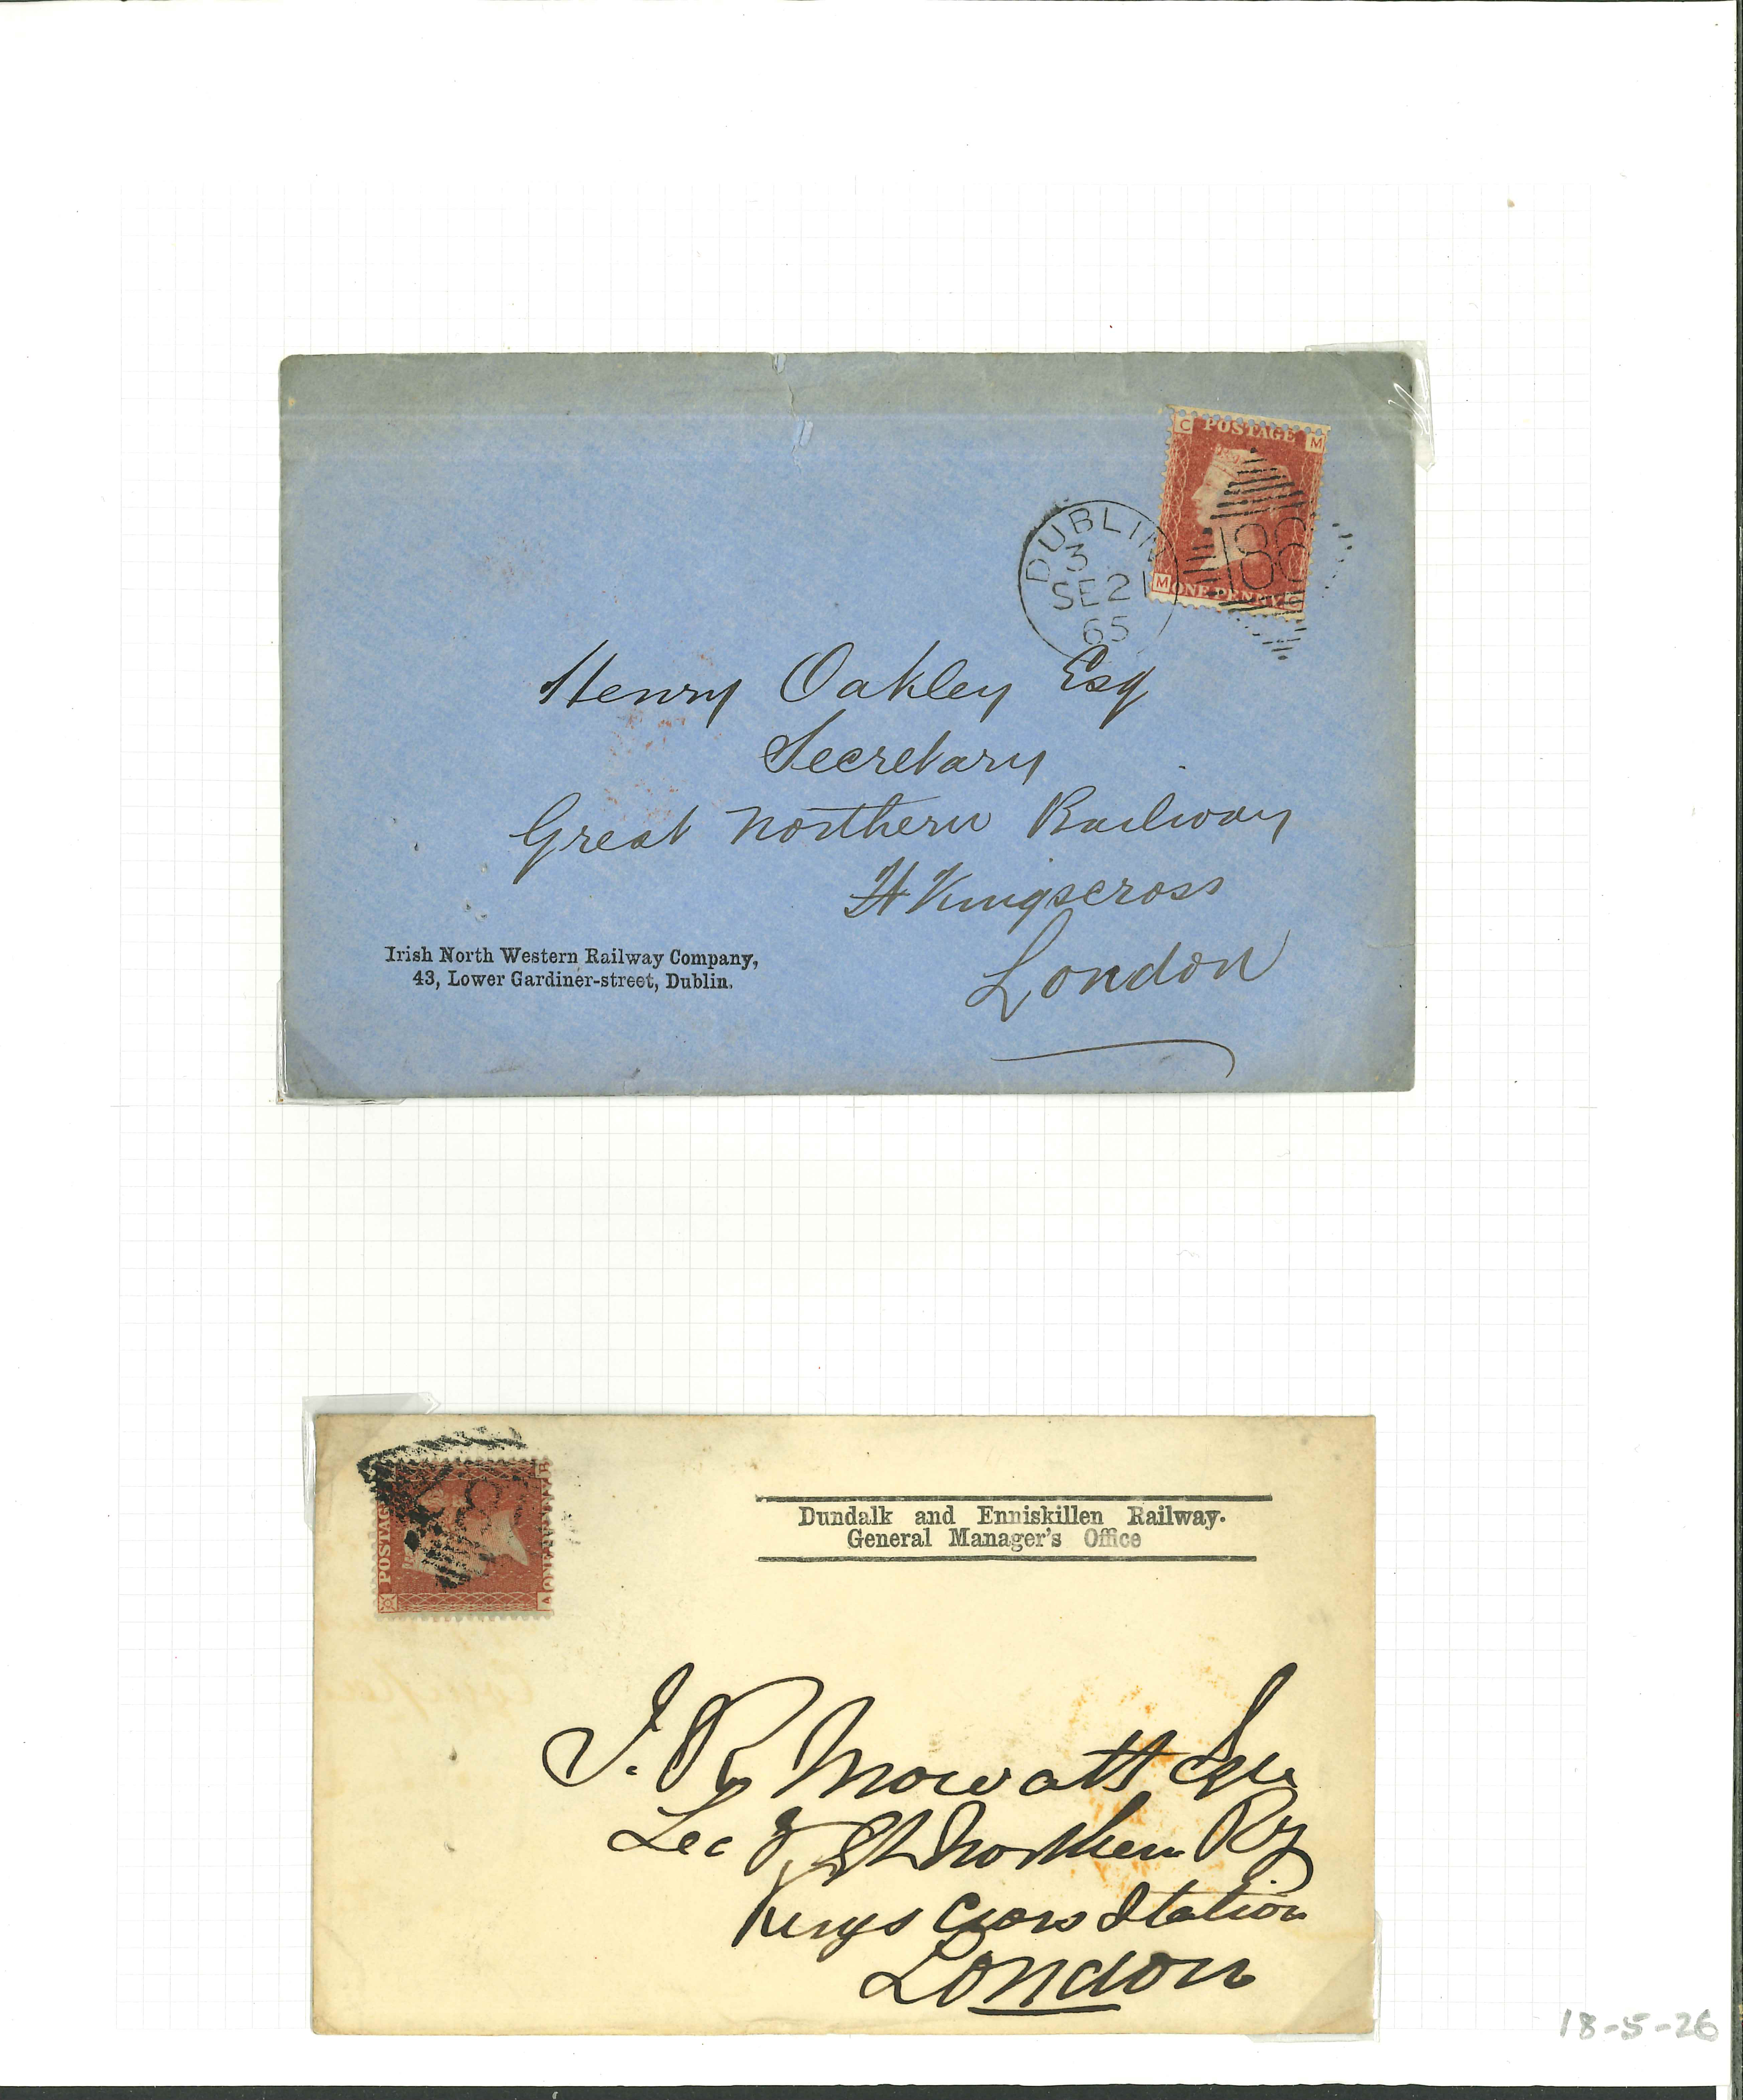 C POSTAGE M
M ONE PENNY C
186
DUBLIN
3
SE 21
65
Henry Oakley Esq
Secretary
Great Northern Railway
Kingscross
London
Irish North Western Railway Company,
43, Lower Gardiner-street, Dublin.
POSTAGE
A ONE PENNY
Dundalk and Enniskillen Railway.
General Manager's Office
J. R. Mowatt Esqre
Sec Gt Northern Ry
Kings Cross Station
London
18-5-26